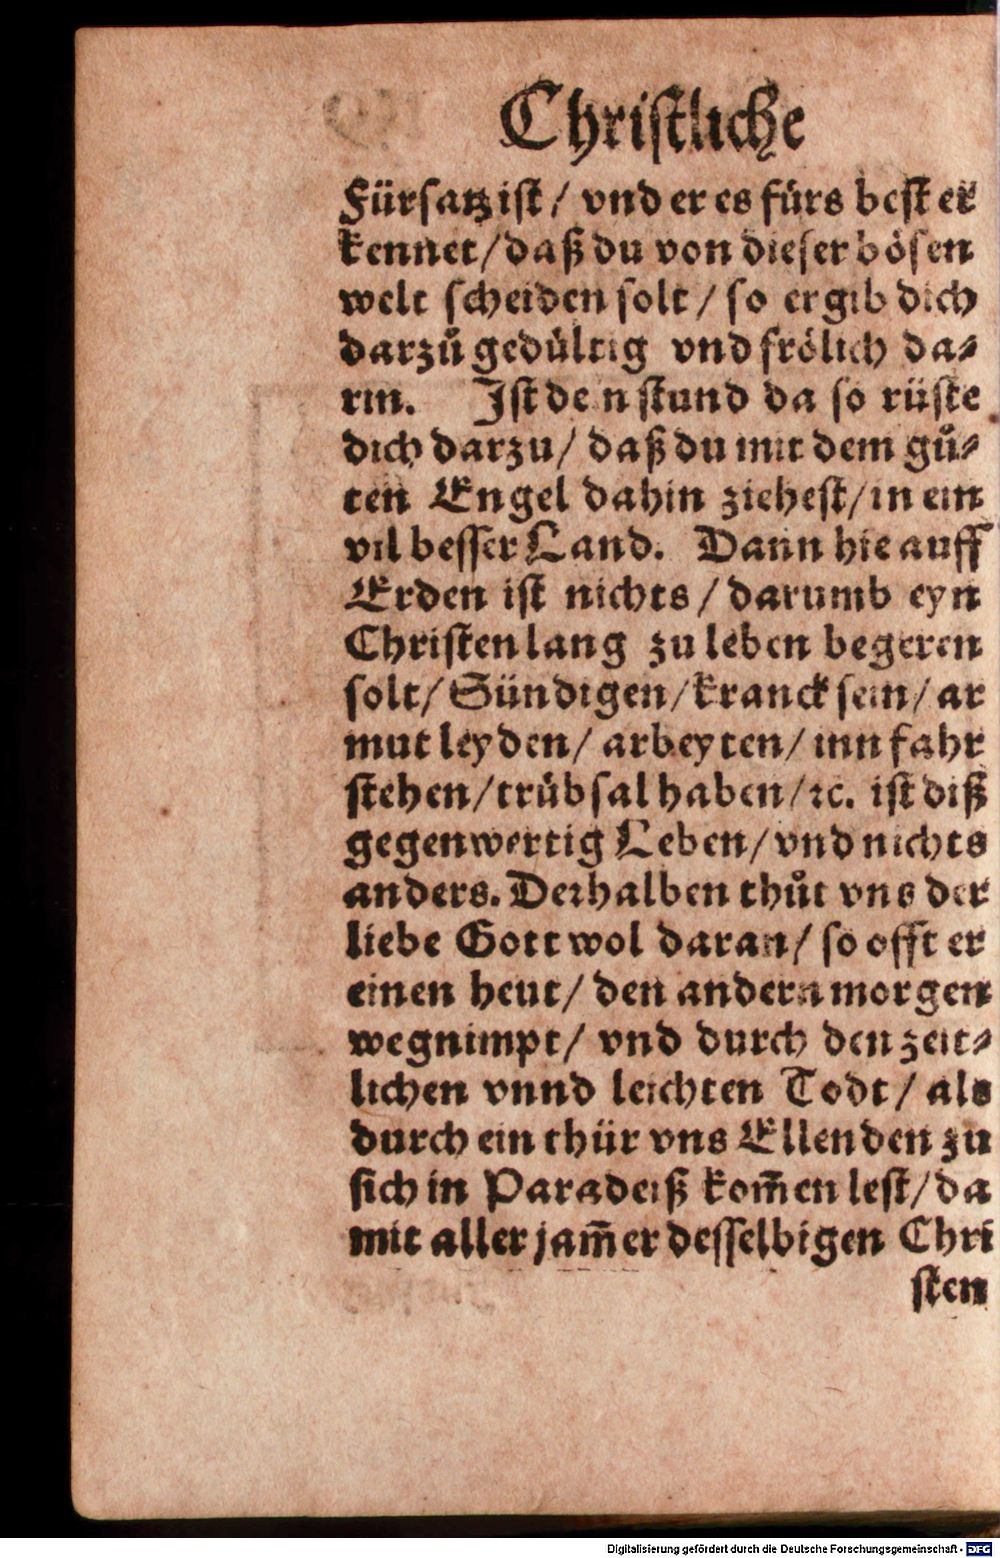 Christliche
Fürsatz ist / vnd er es fürs best er
kennet / daß du von dieser bösen
welt scheiden solt / so ergib dich
darzů gedültig vnd frölich da⸗
rin. Ist dein stund da so rüste
dich darzu / daß du mit dem gů⸗
ten Engel dahin ziehest / in ein
vil besser Land. Dann hie auff
Erden ist nichts / darumb eyn
Christen lang zu leben begeren
solt / Sündigen / kranck sein / ar
mut leyden / arbeyten / inn fahr
stehen / trübsal haben / ꝛc. ist diß
gegenwertig Leben / vnd nichts
anders. Derhalben thůt vns der
liebe Gott wol daran / so offt er
einen heut / den andern morgen
wegnimpt / vnd durch den zeit⸗
lichen vnnd leichten Todt / als
durch ein thür vns Ellenden zu
sich in Paradeiß kom̃en lest / da
mit aller jam̃er desselbigen Chri
sten
Digitalisierung gefördert durch die Deutsche Forschungsgemeinschaft - DFG